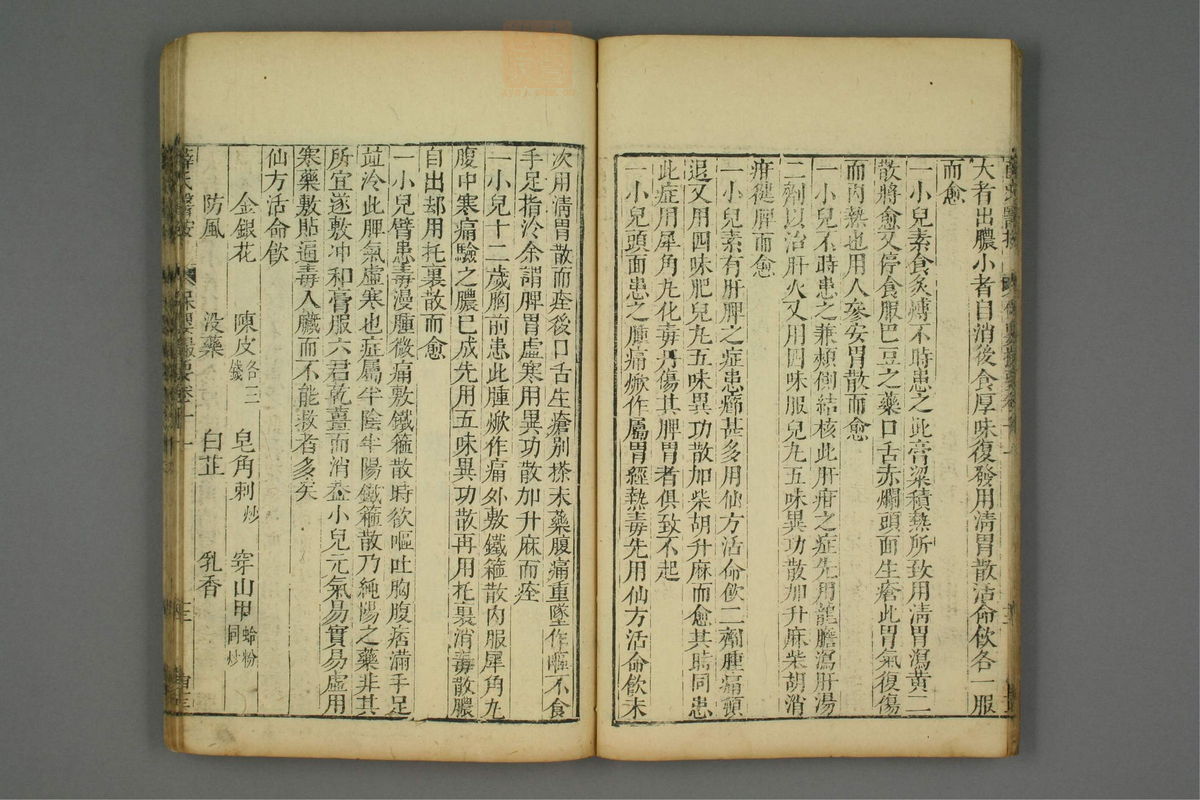 大者出膿小者自消後食厚味復發用清胃散活命飲各一服
而愈
一小兒素食炙煿不時患之此膏粱積熱所致用清胃瀉黃二
散將愈又停食服巴豆之藥口舌赤爛頭面生瘡此胃氣復傷
而内熱也用人參安胃散而愈
一小兒不時患之兼頰側結核此肝疳之症先用龍膽瀉肝湯
二劑以治肝火又用四味肥兒丸五味異功散加升麻柴胡消
疳健脾而愈
一小兒素有肝脾之症患癤甚多用仙方活命飲二劑腫痛頓
退又用四味肥兒丸五味異功散加柴胡升麻而愈其時同患
此症用犀角丸化毒丹傷其脾胃者俱致不起
一小兒頭面患之腫痛焮作屬胃經熱毒先用仙方活命飲末
次用清胃散而痊後口舌生瘡別搽末藥腹痛重墜作嘔不食
手足指冷余謂脾胃虛寒用異功散加升麻而痊
一小兒十二歲胸前患此腫焮作痛外敷鐵箍散内服犀角丸
腹中寒痛驗之膿已成先用五味異功散再用托裏消毒散膿
自出却用托裏散而愈
一小兒臂患毒漫腫微痛敷鐵箍散時欲嘔吐胸腹痞滿手足
並冷此脾氣虛寒也症屬半陰半陽鐵箍散乃純陽之藥非其
所宜遂敷冲和膏服六君乾薑而消蓋小兒元氣易實易虛用
寒藥敷貼逼毒入臟而不能救者多矣
仙方活命飲
金銀花 陳皮各三錢 皂角刺炒 穿山甲蛤粉同炒
防風 没藥 白芷 乳香
薛氏醫按 保嬰撮要卷十一